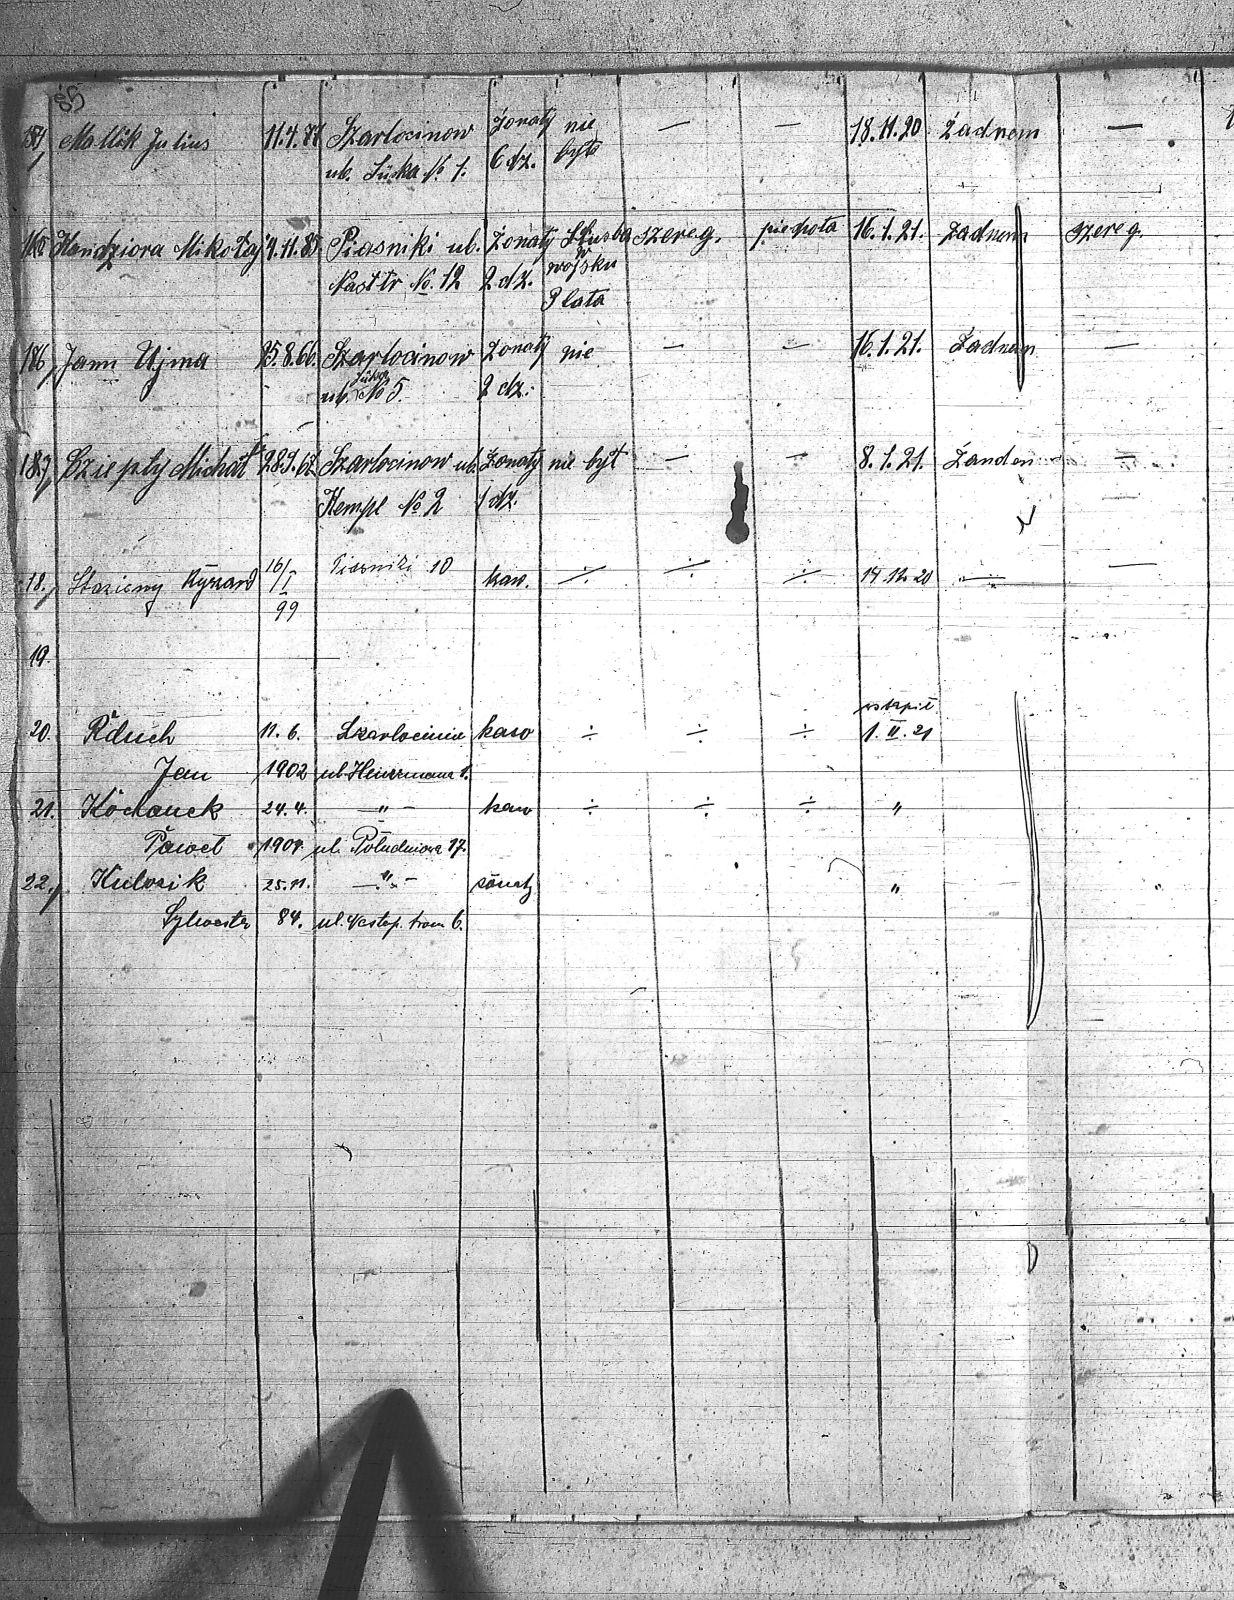 85
184, Mallik Julius 11.4.87 Szarlocinow Żonaty nie — — 18.11.20 Żadnem —
ub. Lüska № 1. 6 dz. był
185 Kandziora Mikołaj 4.11.85 Piasniki ub. Żonaty Służba szereg. piechota 16.1.21. Żadnem szereg.
Nasttr № 12 2 dz. wojsku
3 lata
186, Jann Ujma 25.8.66. Szarlocinow Żonaty nie — — 16.1.21. Żadnem —
ub. Lüska № 5. 2 dz.
187, Cziepły Michał 28.9.62 Szarlocinow ub. Żonaty nie był — — 8.1.21. Żanden —
Kempl № 2 1 dz.
18., Ryszard 16/I 99 Piasniki 10 kaw. ÷ ÷ ÷ 14.12.20 — —
19.
wstąpił
20. Rduch 11.6. kaw ÷ ÷ ÷ 1.II.21
Jan 1902 ub. 1.
21. Kochanek 24.4. — " — kaw ÷ ÷ ÷ "
Paweł 190 ul. Południowa 17.
22., Kulosik 25.11. — " — żonaty " "
Sylwester 84. ul. 6.